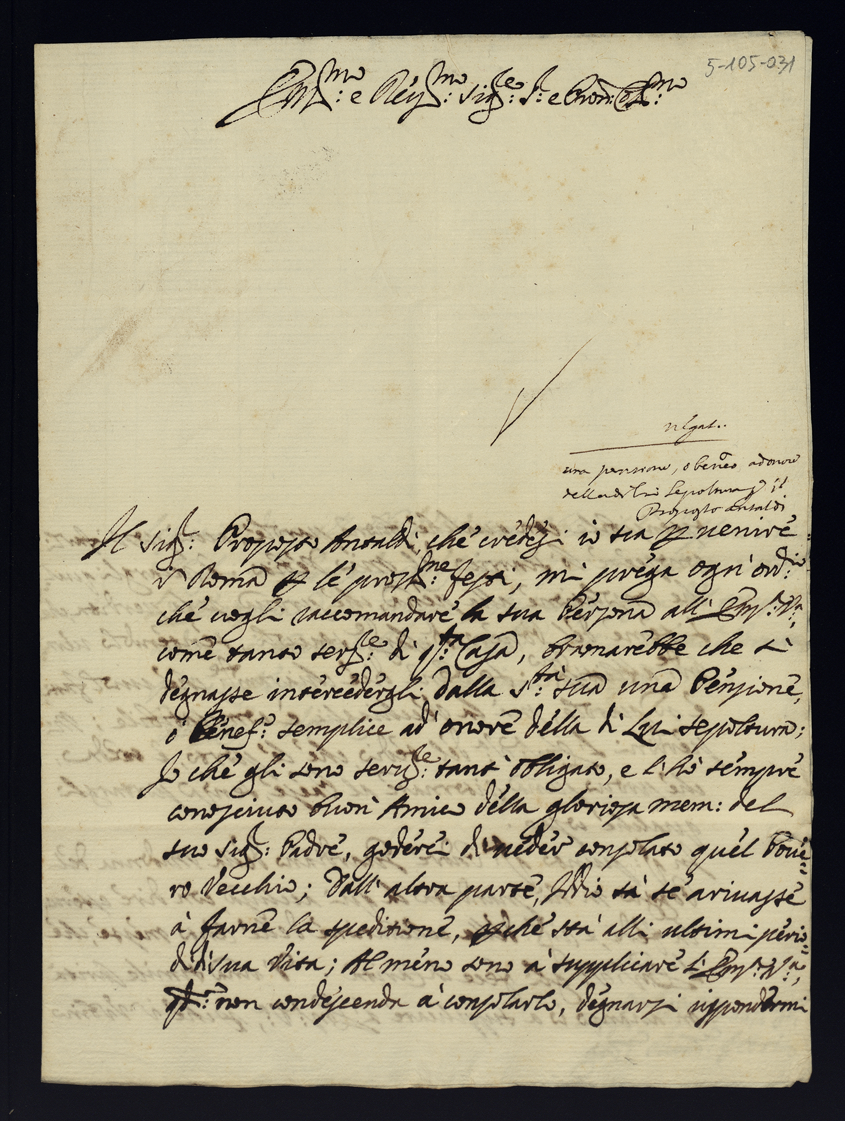 5-105-031
Em.mo e Rev.mo Sig.re S.r e Pron. Co.mo
negat..
una pensione, o benef.o ad onore
della di lui sepoltura p il
Proposto Ansaldi
Il Sig.r: Proposto Ansaldi, che credesi io sia p venire
à Roma p le pross.me feste, mi prega ogni ord.rio
che vogli raccomandare la sua Persona all'Em.za V.a,
come tanto ser.re di q.ta Casa, bramarebbe che si
degnasse intercedergli dalla S.tà sua una Pensione,
ò benef.o semplice ad'onore della di Lui sepoltura;
Io che gli sono serv.re tant'obligato, e l'hò sempre
conosciuto buon Amico della gloriosa mem: del
suo Sig.r: Padre, goderei di veder consolato quel Pove=
ro Vecchio; dall'altra parte, Iddio sà se arivasse
à farne la speditione, p che stà alli ultimi perio=
di di sua Vita; Almeno sono à supplicare l'Em.za V.a,
q.do non condescenda à consolarlo, degnarsi rispondermi